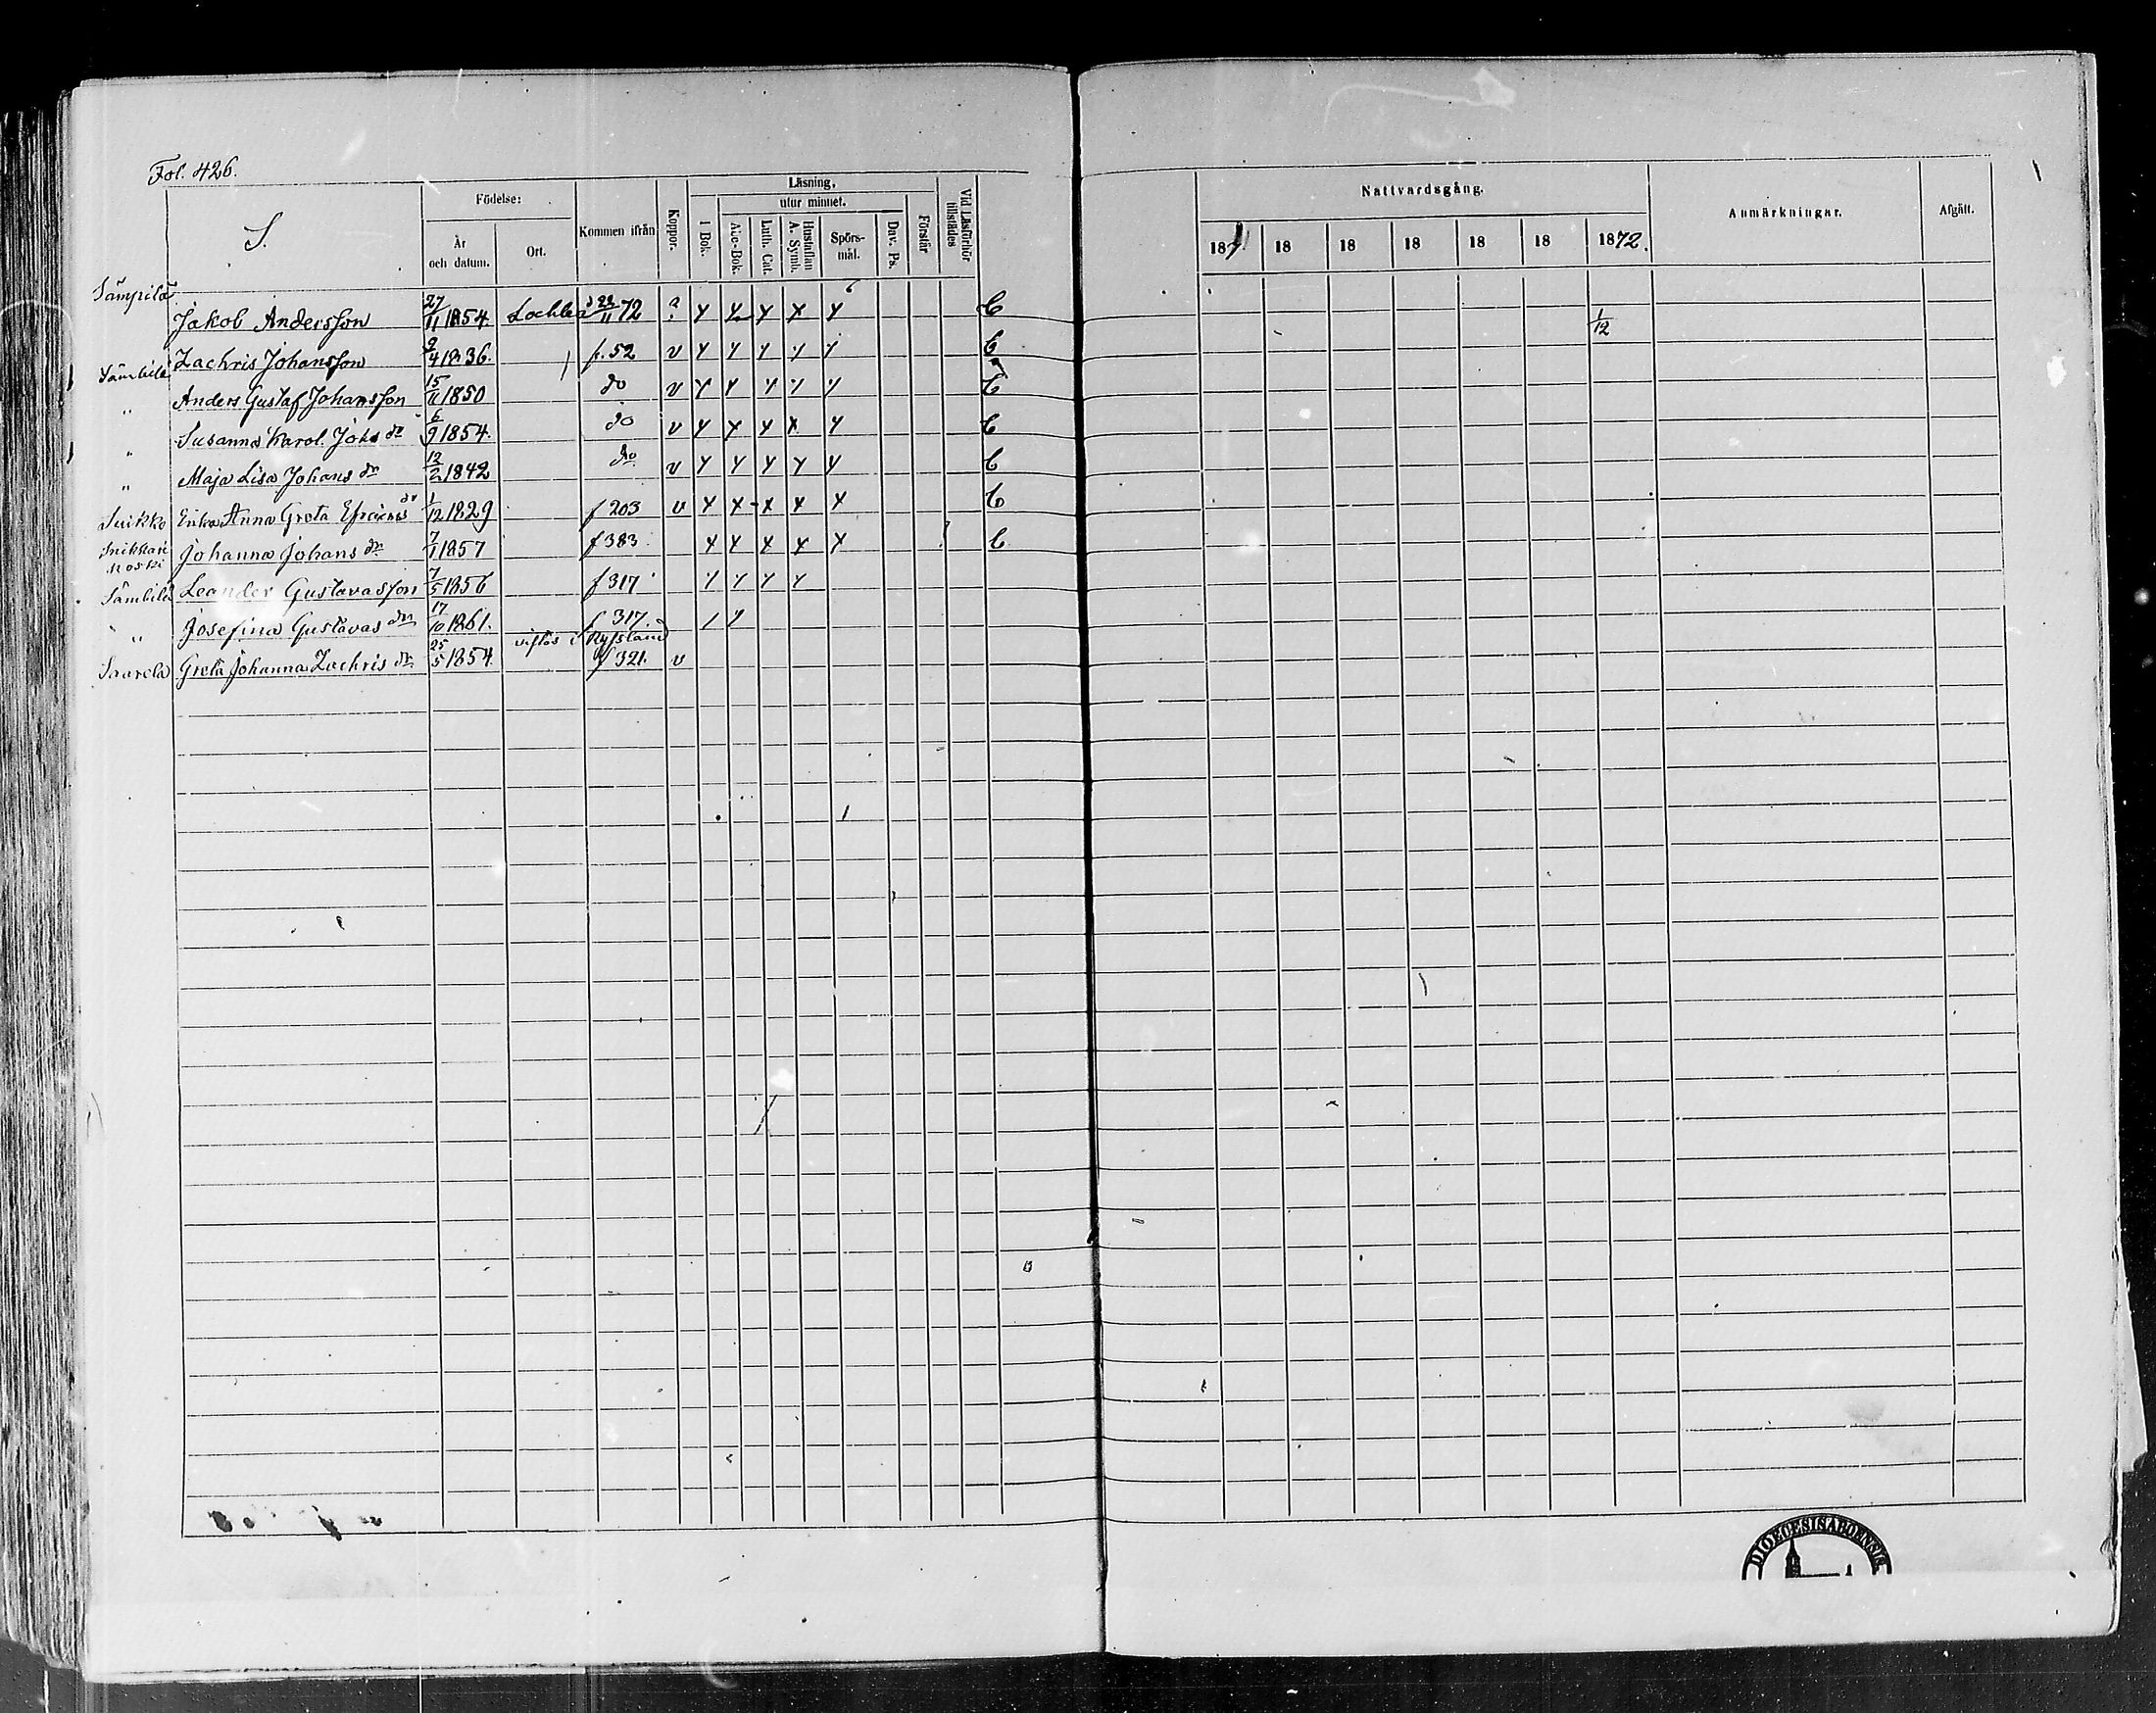 Fol. 426.
S.
Födelse:
År och datum.
Ort.
Kommen ifrån
Koppor.
Läsning,
I Bok.
utur minnet.
Abc-Bok.
Luth. Cat.
Hustaflan A. Symb.
Spörs-mål.
Dav. Ps.
Förstår
Vid Läsförhör tillstädes
Nattvardsgång.
187 18 18 18 18 18 1872.
Anmärkningar.
Afgått.
Sämpilä Jakob Andersson 27/11 1854. Lochteå 22/11 72 a y y y x y C 1/12
Sämbilä Zachris Johansson 9/4 1836. f. 52 v y y y y y C
" Anders Gustaf Johansson 15/11 1850 do v y y y y y C
" Susanna Karol. Johs dr 6/9 1854. do v y x x x y C
" Maja Lisa Johans dr 12/2 1842 do v y y y y y C
Suikko Erika Anna Greta Efraims dr 1/12 1829 f 203 v x x x x x C
Snikkari Moski Johanna Johans dr 7/1 1857 f 383. x x x x x C
Sämbilä Leander Gustavasson 7/5 1856 f 317 y y y y
" Josefina Gustavas dr 17/10 1861. f 317. / y
vistas i Ryssland
Saarela Greta Johanna Zachris dr. 25/5 1854. f 321. v
DIOECESIS ABOENSIS